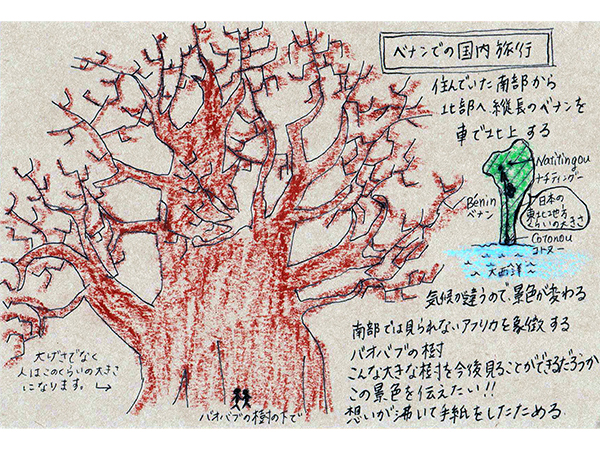 ベナンでの国内旅行
住んでいた南部から
北部へ縦長のベナンを
車で北上する
Natitingou
ナティティングー
Bénin
ベナン
日本の
東北地方
くらいの大きさ
Cotonou
コトヌー
大西洋
気候が違うので、景色が変わる
南部では見られないアフリカを象徴する
バオバブの樹
こんな大きな樹を今後見ることができるだろうか
この景色を伝えたい!!
想いが沸いて手紙をしたためる
大げさでなく
人はこのくらいの大きさ
になります。
バオバブの樹の下で